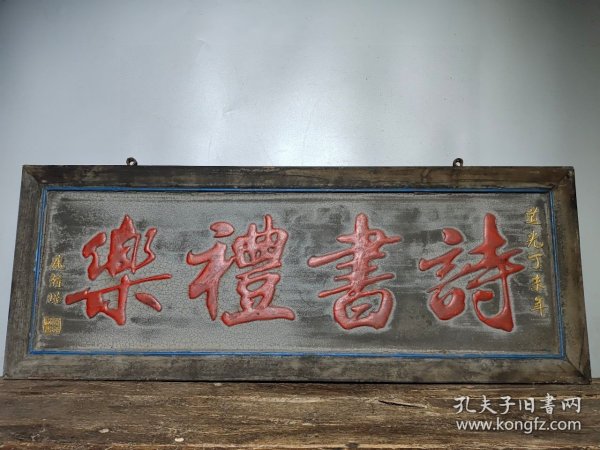 道光丁未年
詩書禮樂
孔夫子旧书网
www.kongfz.com